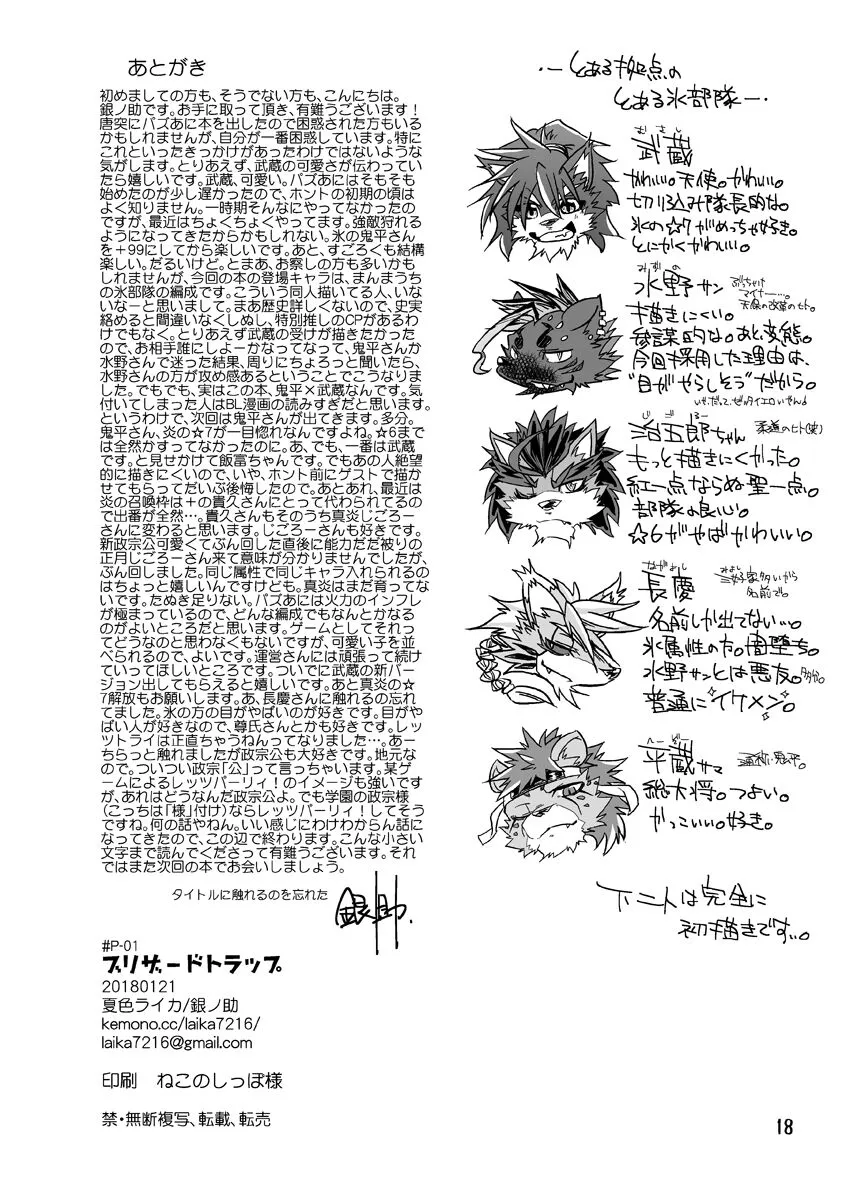 あとがき
初めましての方も、そうでない方も、こんにちは。
銀ノ助です。お手に取って頂き、有難うございます！
唐突にパズあに本を出したので困惑された方もいる
かもしれませんが、自分が一番困惑しています。特に
これといったきっかけがあったわけではないような
気がします。とりあえず、武蔵の可愛さが伝わってい
たら嬉しいです。武蔵、可愛い。パズあにはそもそも
始めたのが少し遅かったので、ホントの初期の頃は
よく知りません。一時期そんなにやってなかったの
ですが、最近はちょくちょくやってます。強敵狩れる
ようになってきたからかもしれない。氷の鬼平さん
を＋99にしてから楽しいです。あと、すごろくも結構
楽しい。だるいけど。とまあ、お察しの方も多いかも
しれませんが、今回の本の登場キャラは、まんまうち
の氷部隊の編成です。こういう同人描いてる人、いな
いなーと思いまして。まあ歴史詳しくないので、史実
絡めると間違いなくしぬし、特別推しのCPがあるわ
けでもなく。とりあえず武蔵の受けが描きたかった
ので、お相手誰にしよーかなってなって、鬼平さんか
水野さんで迷った結果、周りにちょろっと聞いたら、
水野さんの方が攻め感あるということでこうなりま
した。でもでも、実はこの本、鬼平×武蔵なんです。気
付いてしまった人はBL漫画の読みすぎだと思います。
というわけで、次回は鬼平さんが出てきます。多分。
鬼平さん、炎の☆7が一目惚れなんですよね。☆6まで
は全然かすってなかったのに。あ、でも、一番は武蔵
です。と見せかけて飯富ちゃんです。でもあの人絶望
的に描きにくいので、いや、ホント前にゲストで描か
せてもらってだいぶ後悔したので。あとあれ、最近は
炎の召喚枠は＋の貴久さんにとって代わられてるの
で出番が全然…。貴久さんもそのうち真炎じごろー
さんに変わると思います。じごろーさんも好きです。
新政宗公可愛くてぶん回した直後に能力だだ被りの
正月じごろーさん来て意味が分かりませんでしたが、
ぶん回しました。同じ属性で同じキャラ入れられるの
はちょっと嬉しいんですけども。真炎はまだ育ってな
いです。たぬき足りない。パズあには火力のインフレ
が極まっているので、どんな編成でもなんとかなる
のがよいところだと思います。ゲームとしてそれっ
てどうなのと思わなくもないですが、可愛い子を並
べられるので、よいです。運営さんには頑張って続け
ていってほしいところです。ついでに武蔵の新バー
ジョン出してもらえると嬉しいです。あと真炎の☆
7解放もお願いします。あ、長慶さんに触れるの忘れ
てました。氷の方の目がやばいのが好きです。目がや
ばい人が好きなので、尊氏さんとかも好きです。レッ
ツトライは正直ちゃうねんってなりました…。あー
ちらっと触れましたが政宗公も大好きです。地元な
ので。ついつい政宗「公」って言っちゃいます。某ゲ
ームによるレッツパーリィ！のイメージも強いです
が、あれはどうなんだ政宗公よ。でも学園の政宗様
（こっちは「様」付け）ならレッツパーリィ！してそう
ですね。何の話やねん。いい感じにわけわからん話に
なってきたので、この辺で終わります。こんな小さい
文字まで読んでくださって有難うございます。それ
ではまた次回の本でお会いしましょう。
タイトルに触れるのを忘れた
銀ノ助.
#P-01
ブリザードトラップ
20180121
夏色ライカ/銀ノ助
kemono.cc/laika7216/
laika7216@gmail.com
印刷　ねこのしっぽ様
禁・無断複写、転載、転売
・－とある拠点の
とある氷部隊－・
むさし
武蔵
かわいい。天使。かわいい。
切り込み隊長的な。
氷の☆7がめっちゃ好き。
とにかくかわいい。
みずの
水野サン
ぶっちゃけ
マイナー…。
天保の改革のヒト。
描きにくい。
参謀的な。あと変態。
今回採用した理由は、
"目がやらしそう"だから。
じごろー
治五郎ちゃん
柔道のヒト(笑)
もっと描きにくかった。
紅一点ならぬ聖一点。
部隊の良心。
☆6がやばかわいい。
ながよし
長慶
三好家多いから
名前で。
名前しか出てない…。
氷属性の方。闇堕ち。
水野サンとは悪友。多分。
普通にイケメン。
平蔵サマ
通称・鬼平。
総大将。つよい。
かっこいい。好き。
下二人は完全に
初描きです…。
18